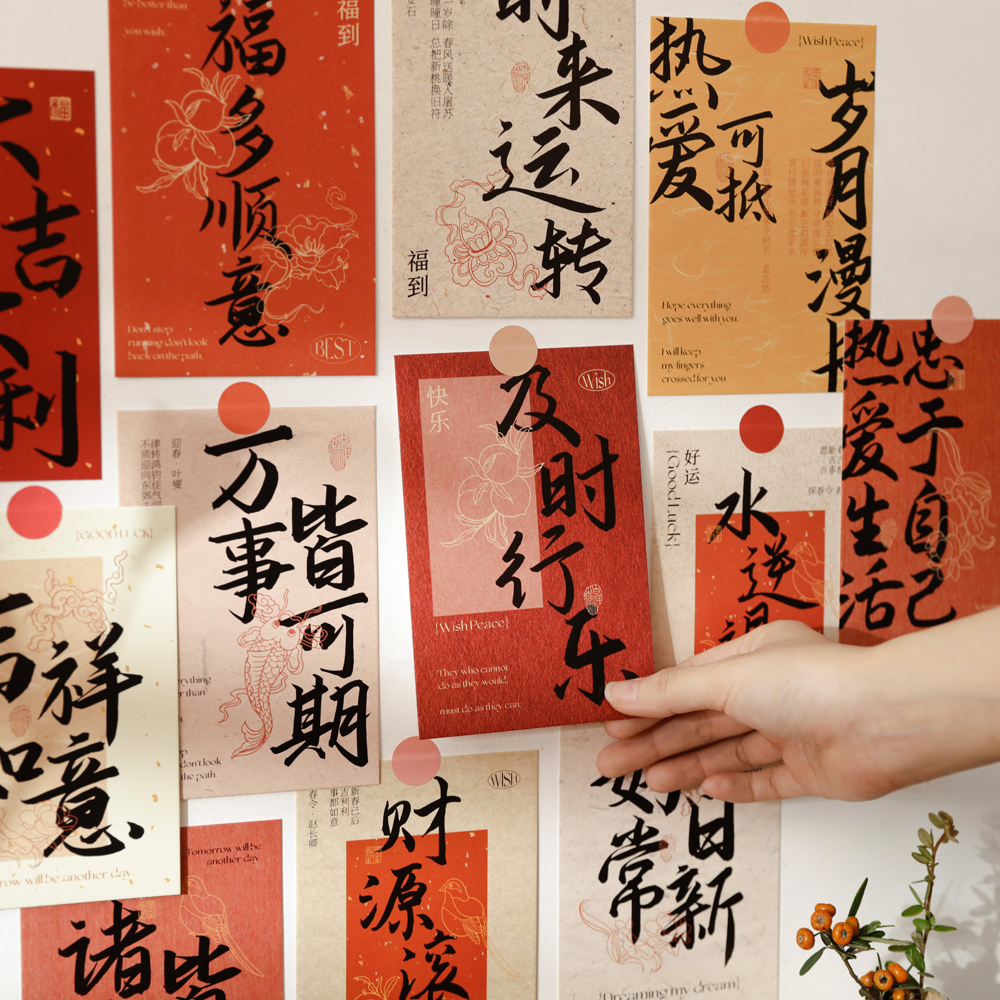 大吉
大利
福
be better than
you wish.
福到
福多顺意
Don't stop
running don't look
back on the path.
BEST
时来运转
春风送暖入屠苏
曈曈日 总把新桃换旧符
福到
[Wish Peace]
热爱
可抵
岁月漫长
Hope everything
goes well with you.
I will keep
my fingers
crossed for you
万事
皆可期
迎春 叶燮
律转鸿钧佳气
不须迎向东郊
rything
r than
don't look
the path.
快乐
Wish
及时行乐
[Wish Peace]
They who cannot
do as they would,
must do as they can.
好运
[Good Luck]
水逆退
忠于自己
热爱生活
[GOOD LUCK]
祥
如意
row will be another day
Tomorrow will be
another day.
诸
皆
WISH
新春已后
吉利利
事都如意
春令·赵长卿
财源滚
如常
日新
[Dreaming my dream]